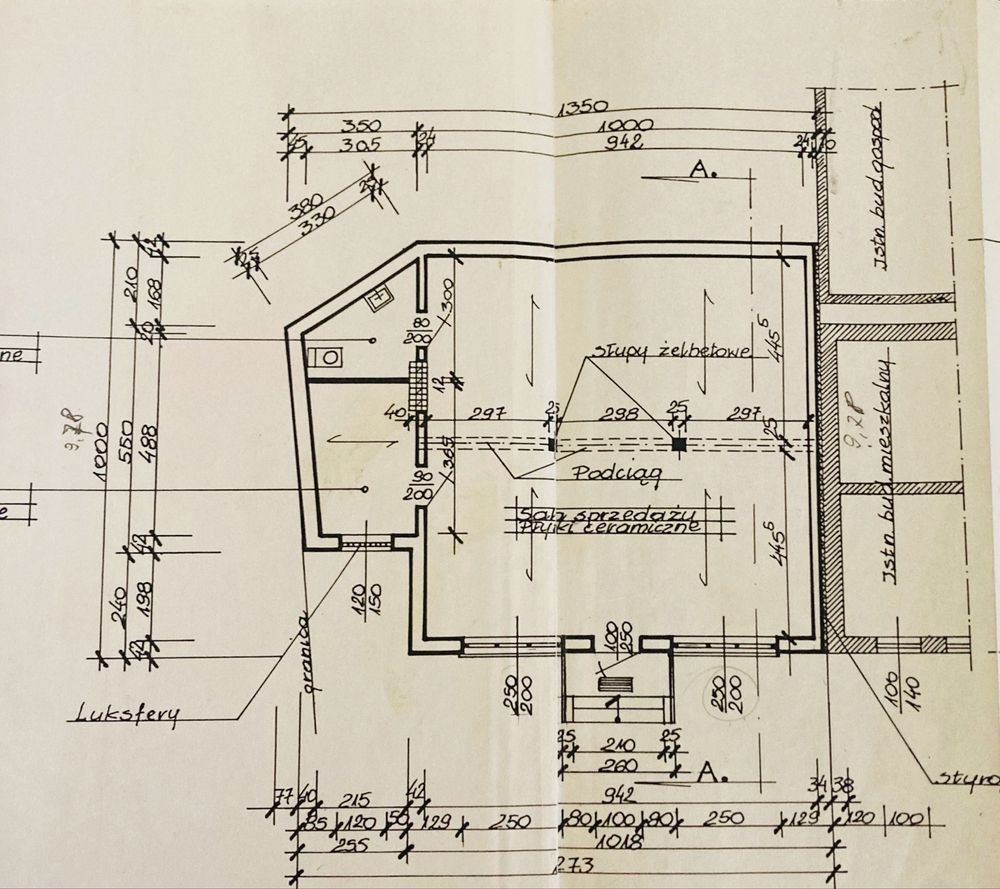 1350
350 1000
45 305 24 942 24 10
A.
380
330
25
24
Istn. bud. gospod
12
210 168
20
300
80
200
słupy żelbetowe
445⁵
ne
12
40 297 25 298 25 297
25
9,78
1000 550 488
365
Podciąg
90
200
Sala sprzedaży
Płytki ceramiczne
9,78
Istn. bud. mieszkalny
e
42
445⁵
120
150
240 198
42
granica
100
250
250
200
250
200
100
140
Luksfery
25 210 25
260
A.
styro
77 40 215 42 942 34 38
85 120 50 129 250 80 100 80 250 129 120 100
255 1018
1273